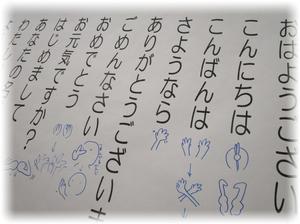 おはようござい
こんにちは
こんばんは
さようなら
ありがとうございま
ごめんなさい
おめでとう
お元気ですか？
はじめまして
あなたの
わたしの名